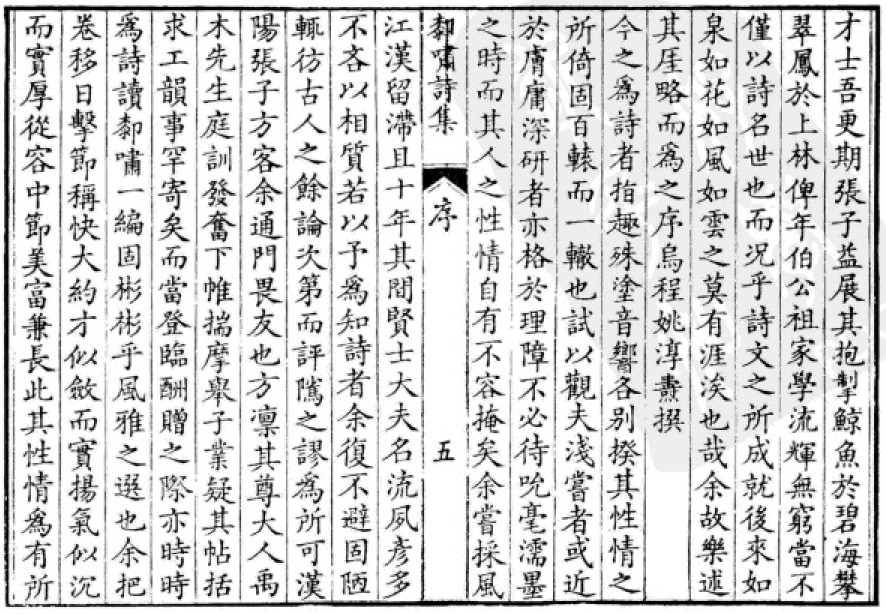 才士吾更期張子益展其抱掣鯨魚於碧海攀
翠鳳於上林俾年伯公祖家學流輝無窮當不
僅以詩名世也而况乎詩文之所成就後來如
泉如花如風如雲之莫有涯涘也哉余故樂述
其厓略而為之序烏程姚淳燾撰
今之為詩者指趣殊塗音響各別揆其性情之
所倚固百轅而一轍也試以觀夫淺嘗者或近
於膚庸深研者亦格於理障不必待吮毫濡墨
之時而其人之性情自有不容掩矣余嘗採風
嘯詩集 序 五
江漢留滯且十年其間賢士大夫名流夙彥多
不吝以相質若以予為知詩者余復不避固陋
輒彷古人之餘論次第而評騭之謬為所可漢
陽張子方客余通門畏友也方凛其尊大人禹
木先生庭訓發奮下帷揣摩舉子業疑其帖括
求工韻事罕寄矣而當登臨酬贈之際亦時時
為詩讀嘯一編固彬彬乎風雅之選也余把
卷移日擊節稱快大約才似斂而實揚氣似沉
而實厚從容中節美富兼長此其性情為有所